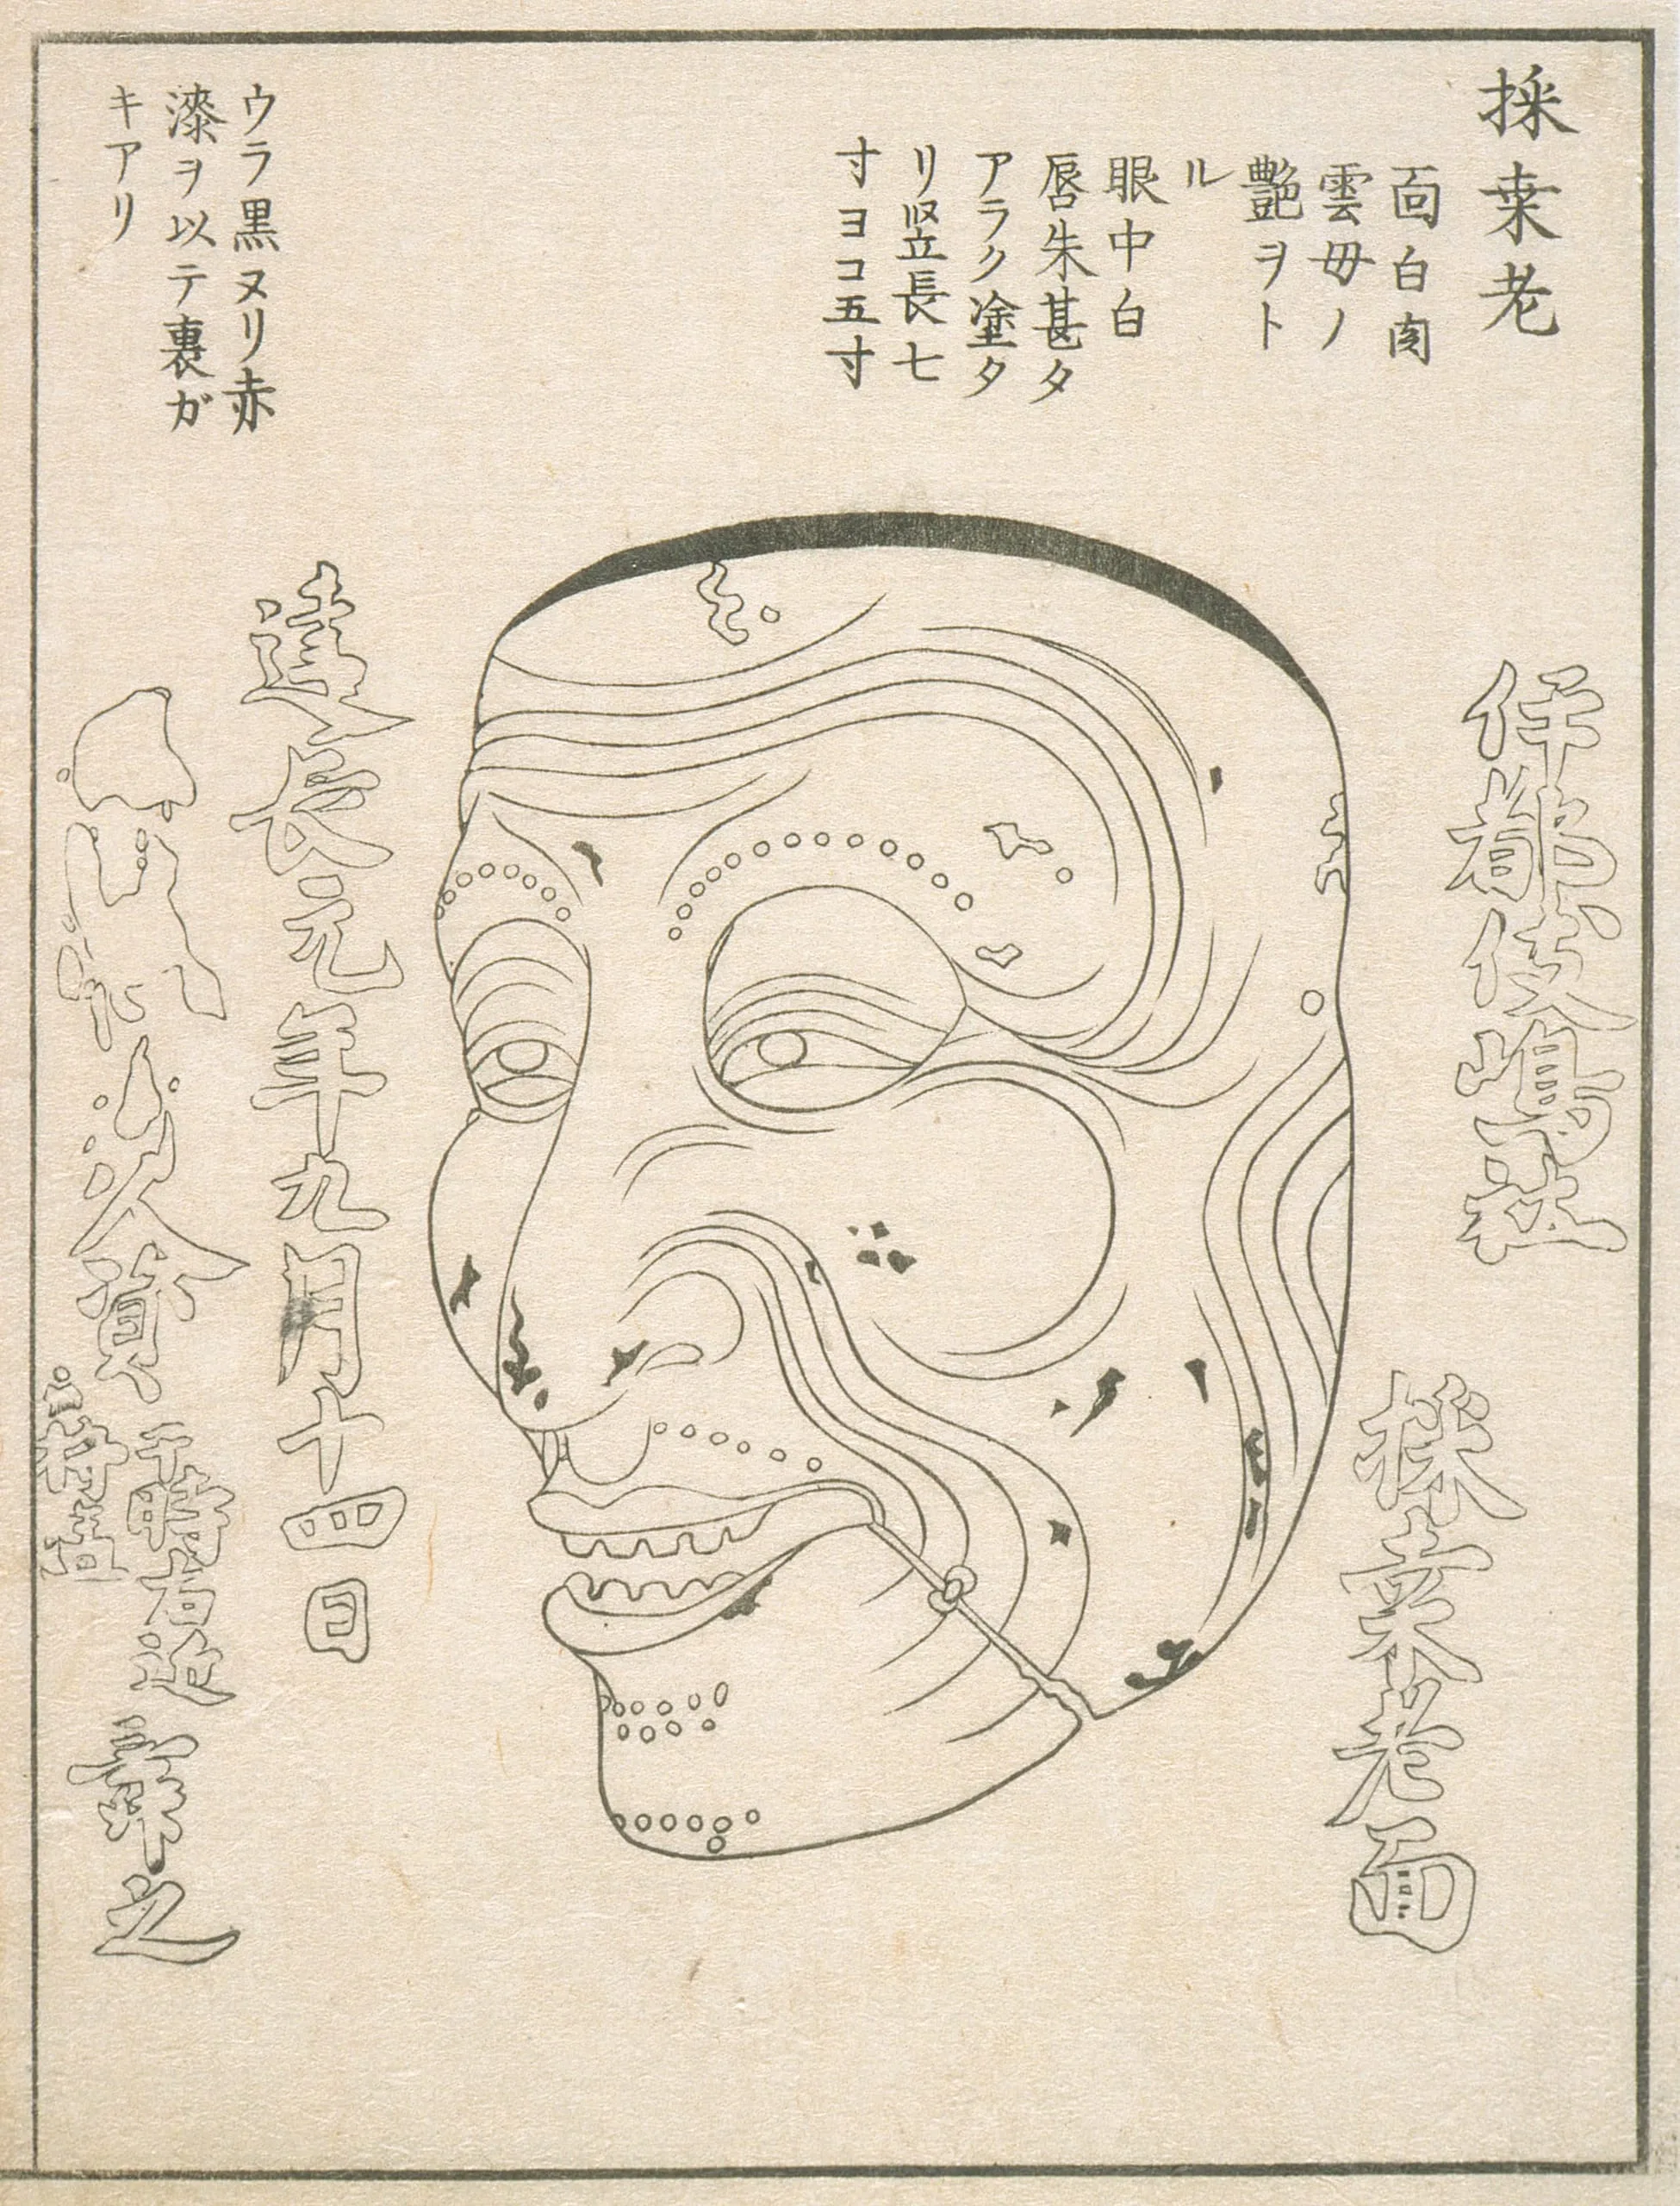 採桒老
面白肉
雲母ノ
艶ヲト
ル
眼中白
唇朱甚タ
アラク塗タ
リ竪長七
寸ヨコ五寸
ウラ黒ヌリ赤
漆ヲ以テ裏ガ
キアリ
伊都伎嶋社
採桒老面
建長元年九月十四日
資
右近
之